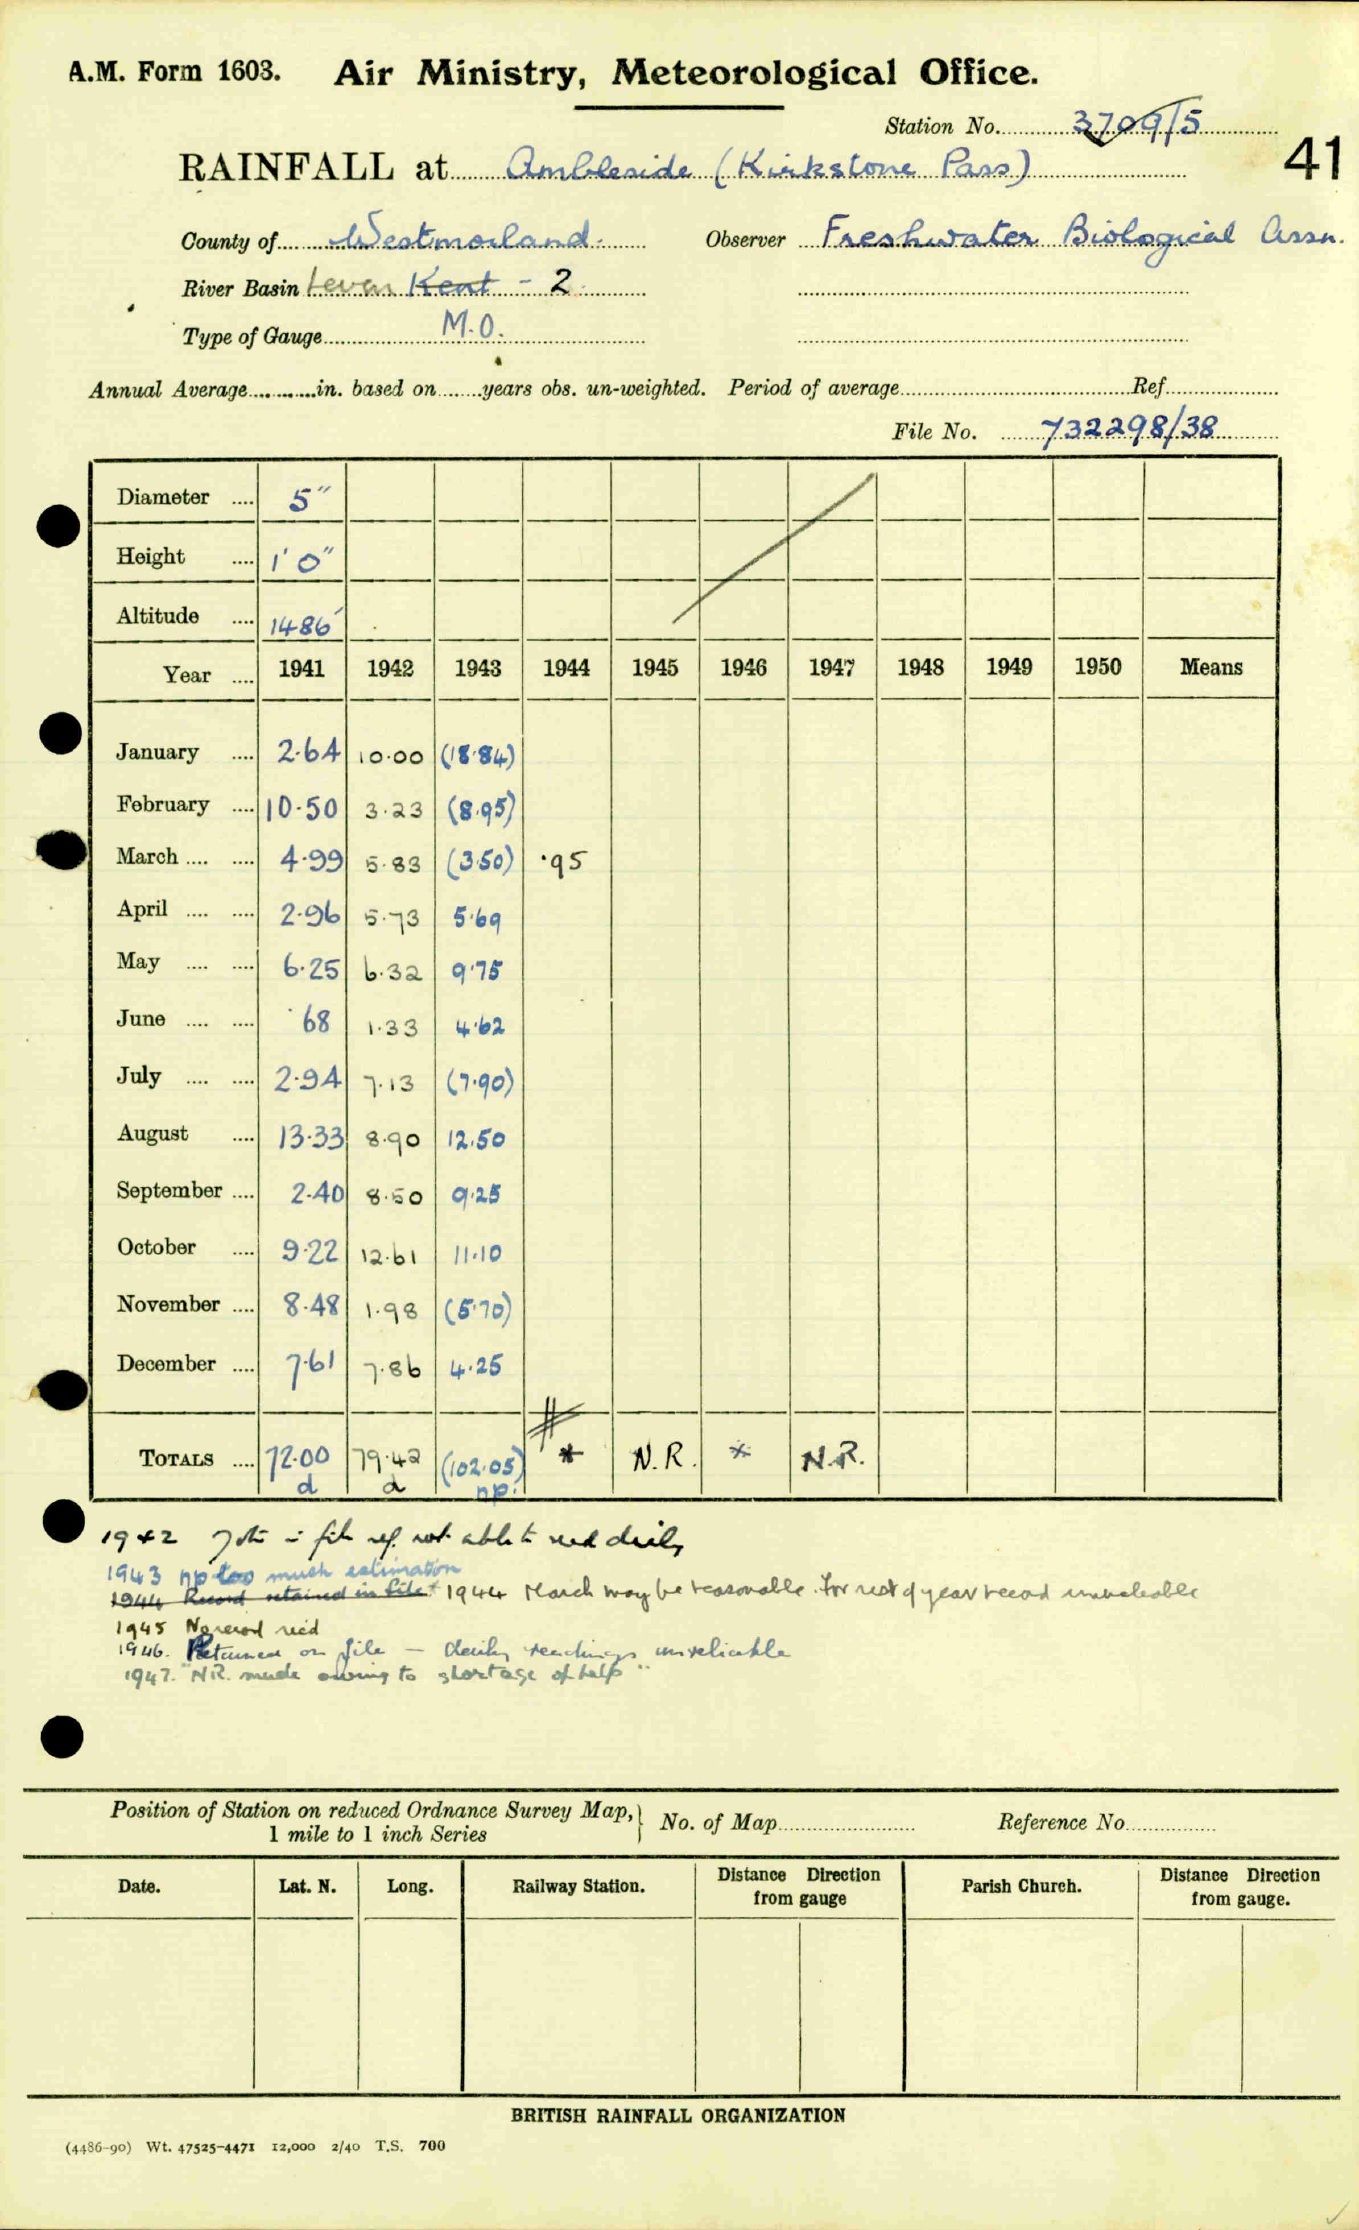 A.M. Form 1603. Air Ministry, Meteorological Office.
Station No. 3709/5
41
RAINFALL at Ambleside (Kirkstone Pass)
County of Westmorland. Observer Freshwater Biological Assn.
River Basin Leven Kent - 2
Type of Gauge M.O.
Annual Average in. based on years obs. un-weighted. Period of average Ref
File No. 732298/38
Diameter 5"
Height 1' 0"
Altitude 1486'
Year 1941 1942 1943 1944 1945 1946 1947 1948 1949 1950 Means
January 2·64 10·00 (18·84)
February 10·50 3·23 (8·95)
March 4·99 5·83 (3·50) ·95
April 2·96 5·73 5·69
May 6·25 6·32 9·75
June ·68 1·33 4·62
July 2·94 7·13 (7·90)
August 13·33 8·90 12·50
September 2·40 8·50 9·25
October 9·22 12·61 11·10
November 8·48 1·98 (5·70)
December 7·61 7·86 4·25
TOTALS 72·00 79·42 (102·05) * N.R. * N.R.
d d np.
1942 file ref. not able to read daily
1943 np too much estimation
1944 Record retained in file 1944 March may be reasonable. For rest of year record unreliable
1945 No record recd
1946. Retained on file — daily readings unreliable
1947. "N.R. made owing to shortage of help"
Position of Station on reduced Ordnance Survey Map, 1 mile to 1 inch Series } No. of Map Reference No.
Date. Lat. N. Long. Railway Station. Distance Direction from gauge Parish Church. Distance Direction from gauge.
BRITISH RAINFALL ORGANIZATION
(4486-90) Wt. 47525-4471 12,000 2/40 T.S. 700